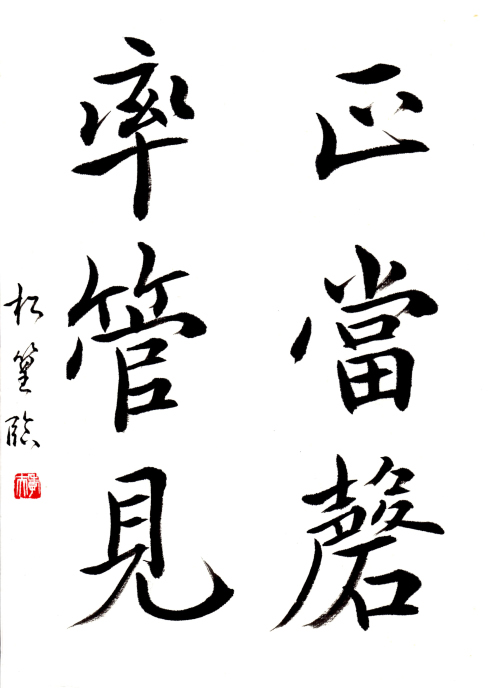 正當磬
率管見
松篁臨